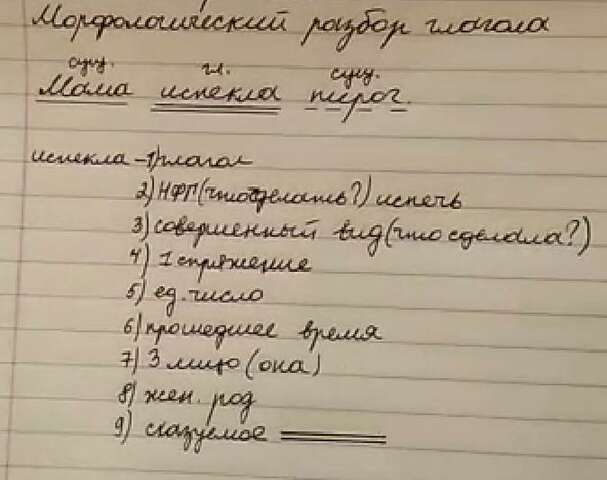 Морфологический разбор глагола
сущ. гл. сущ.
Мама испекла пирог.
испекла - 1) глагол
2) НФГ (что сделать?) испечь
3) совершенный вид (что сделала?)
4) 1 спряжение
5) ед. число
6) прошедшее время
7) 3 лицо (она)
8) жен. род
9) сказуемое